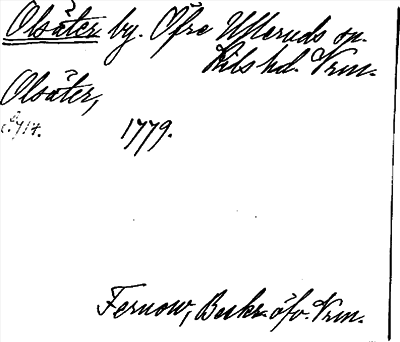 Olsäter by. Öfre Ulleruds sn.
Kils hd. Vrm.
Olsäter,
s. 714. 1779.
Fernow, Beskr. öfv. Vrm.